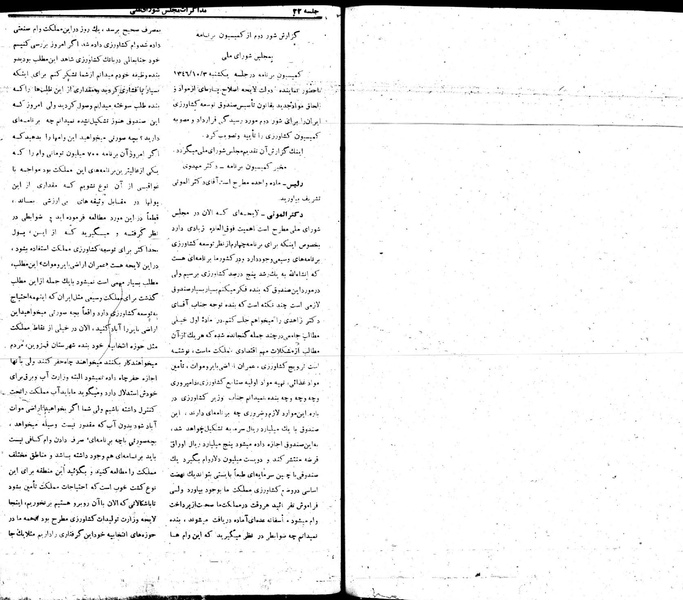 جلسه ۲۲
مذاکرات مجلس شورای ملی
گزارش شور دوم از کمیسیون برنامه
بمجلس شورای ملی
کمیسیون برنامه در جلسه یکشنبه ۱۳۴۶/۱۰/۳
باحضور نماینده دولت لایحه اصلاح پاره‌ای از مواد و
الحاق مواد جدید بقانون تأسیس صندوق توسعه کشاورزی
ایران را برای شور دوم مورد رسیدگی قرار داد و مصوبه
کمیسیون کشاورزی را تأیید و تصویب کرد.
اینک گزارش آن تقدیم مجلس شورای ملی میگردد.
مخبر کمیسیون برنامه - دکتر مهدوی
رئیس - ماده واحده مطرح است آقای دکتر الموتی
تشریف بیاورید.
دکتر الموتی - لایحه‌ای که الان در مجلس
شورای ملی مطرح است اهمیت فوق‌العاده زیادی دارد
بخصوص اینکه برای برنامه چهارم از نظر توسعه کشاورزی
برنامه‌های وسیعی وجود دارد و در کشور ما برنامه‌ای هست
که انشاءالله به یک رشد پنج درصد کشاورزی برسیم ولی
در مورد این صندوق که بنده فکر میکنم بسیار بسیار صندوق
لازمی است چند نکته است که بنده توجه جناب آقای
دکتر زاهدی را میخواهم جلب کنم. در ماده اول خیلی
مطالب جامعی در چند جمله گنجانده شده که هر یک از آن
مطالب از مشکلات مهم اقتصادی مملکت ماست، نوشته
است ترویج کشاورزی، عمران اراضی بایر و موات، تأمین
مواد غذائی، تهیه مواد اولیه صنایع کشاورزی، دامپروری
وچه وچه وچه بنده نمیدانم جناب وزیر کشاورزی در
باره این موارد لازم و ضروری چه برنامه‌ای دارند، این
صندوق با یک میلیارد ریال سرمایه تشکیل خواهد شد،
به این صندوق اجازه داده میشود پنج میلیارد ریال اوراق
قرضه منتشر کند و دویست میلیون دلار وام بگیرد یک
صندوقی با چنین سرمایه‌ای طبعاً بایستی بتواند یک نهضت
اساسی در وضع کشاورزی مملکت ما بوجود بیاورد ولی
فراموش نفرمائید هر وقت در مملکت ما صحبت از پرداخت
وام میشود، متأسفانه عده‌ای آماده دریافت میشوند، بنده
نمیدانم چه ضوابطی در نظر میگیرید که این وام ها
بمصرف صحیح برسد، یک روز در این مملکت وام صنعتی
داده شد وام کشاورزی داده شد. اگر امروز بررسی کنیم
خود جنابعالی در بانک کشاورزی شاهد این مطلب بودید و
بنده وظیفه خودم میدانم از شما تشکر کنم برای اینکه
بسیار پافشاری کردید به مقداری از این طلب‌ها را که
بنده طلب سوخته میدانم وصول کردید ولی امروز که
این صندوق هنوز تشکیل نشده نمیدانم چه برنامه‌ای
دارید؟ بچه صورتی میخواهید این وامها را بدهید که
اگر امروز آن برنامه ۷۰۰ میلیون تومانی وام را که
یکی از عالیترین برنامه‌های این مملکت بود مواجه با
عواقبی از آن نوع نشویم که مقداری از این
پولها در مقابل وثیقه های بی ارزشی بماند،
قطعاً در این مورد مطالعه فرموده‌اید و ضوابطی در
نظر گرفته و میگیرید که از این پول
حداکثر برای توسعه کشاورزی مملکت استفاده بشود،
در این لایحه هست «عمران اراضی بایر و موات» این مطلب،
مطلب بسیار مهمی است نمیشود با یک جمله از این مطلب
گذشت برای مملکت وسیعی مثل ایران که اینهمه احتیاج
به توسعه کشاورزی دارد واقعاً بچه صورتی میخواهید این
اراضی بایر را آباد کنید، الان در خیلی از نقاط مملکت
مثل حوزه انتخابیه خود بنده شهرستان قزوین، مردم
میخواهند کار بکنند میخواهند چاه حفر کنند ولی به آنها
اجازه حفر چاه داده نمیشود البته وزارت آب و برق برای
خودش استدلال دارد و میگوید ما باید آب مملکت را تحت
کنترل داشته باشیم ولی شما اگر بخواهید اراضی موات
آباد شود بدون آب که مقدور نیست وسیله میخواهد،
بچه صورتی با چه برنامه‌ای؟ صرف دادن وام کافی نیست
باید برنامه‌ای هم وجود داشته باشد و مناطق مختلف
مملکت را مطالعه کنید و بگوئید این منطقه برای این
نوع کشت خوب است که احتیاجات مملکت تأمین بشود
تا باشکالاتی که الان با آن روبرو هستیم برنخوریم، اینجا
لایحه وزارت تولیدات کشاورزی مطرح بود همه ما در
حوزه‌های انتخابیه خود این گرفتاری را داریم مثلا یک جا